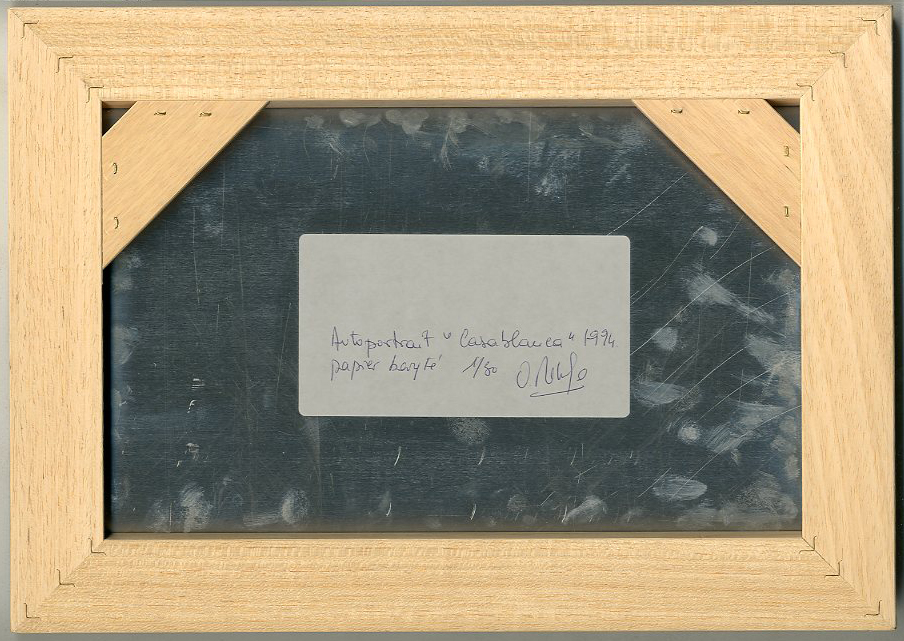 Autoportrait "Casablanca" 1994.
papier baryté 1/30